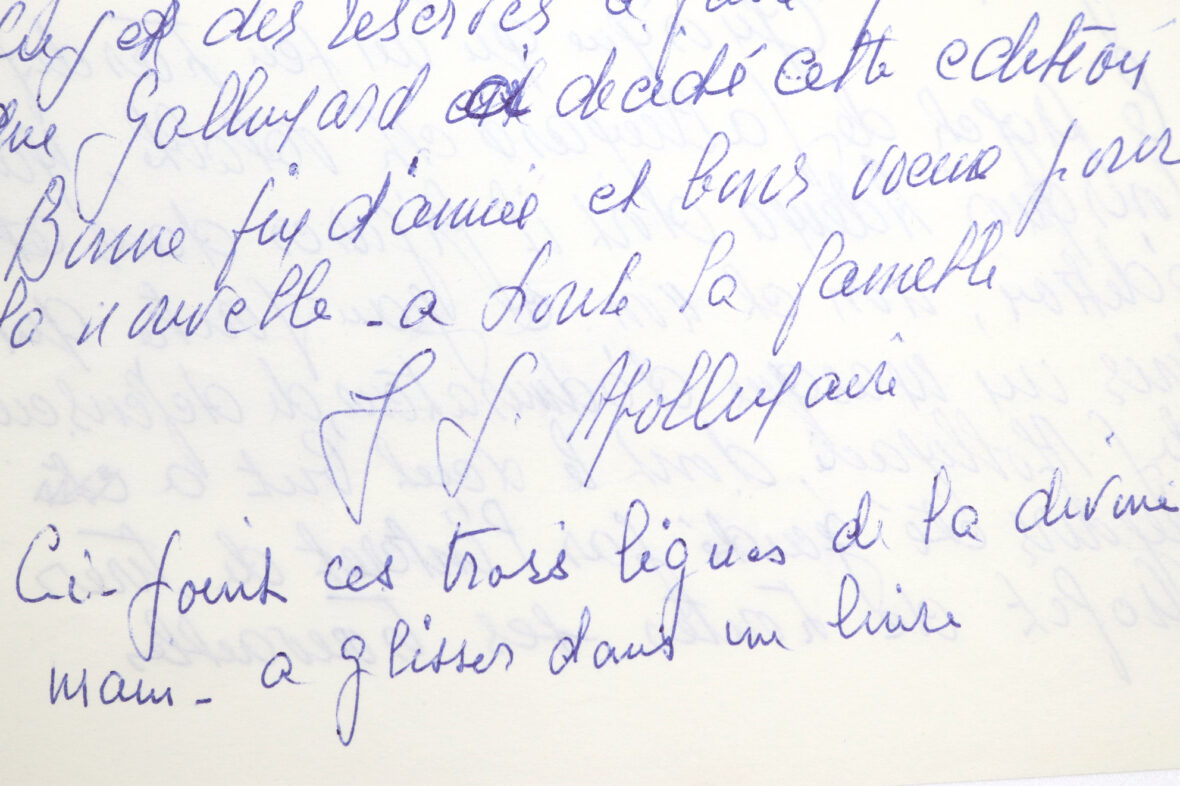 des reserves a
que Gallimard ait decidé cette edition
Bonne fin d'année et bons voeux pour
la nouvelle - a toute la famille
J G. Apollinaire
Ci-joint ces trois lignes de la divine
main - a glisser dans un livre